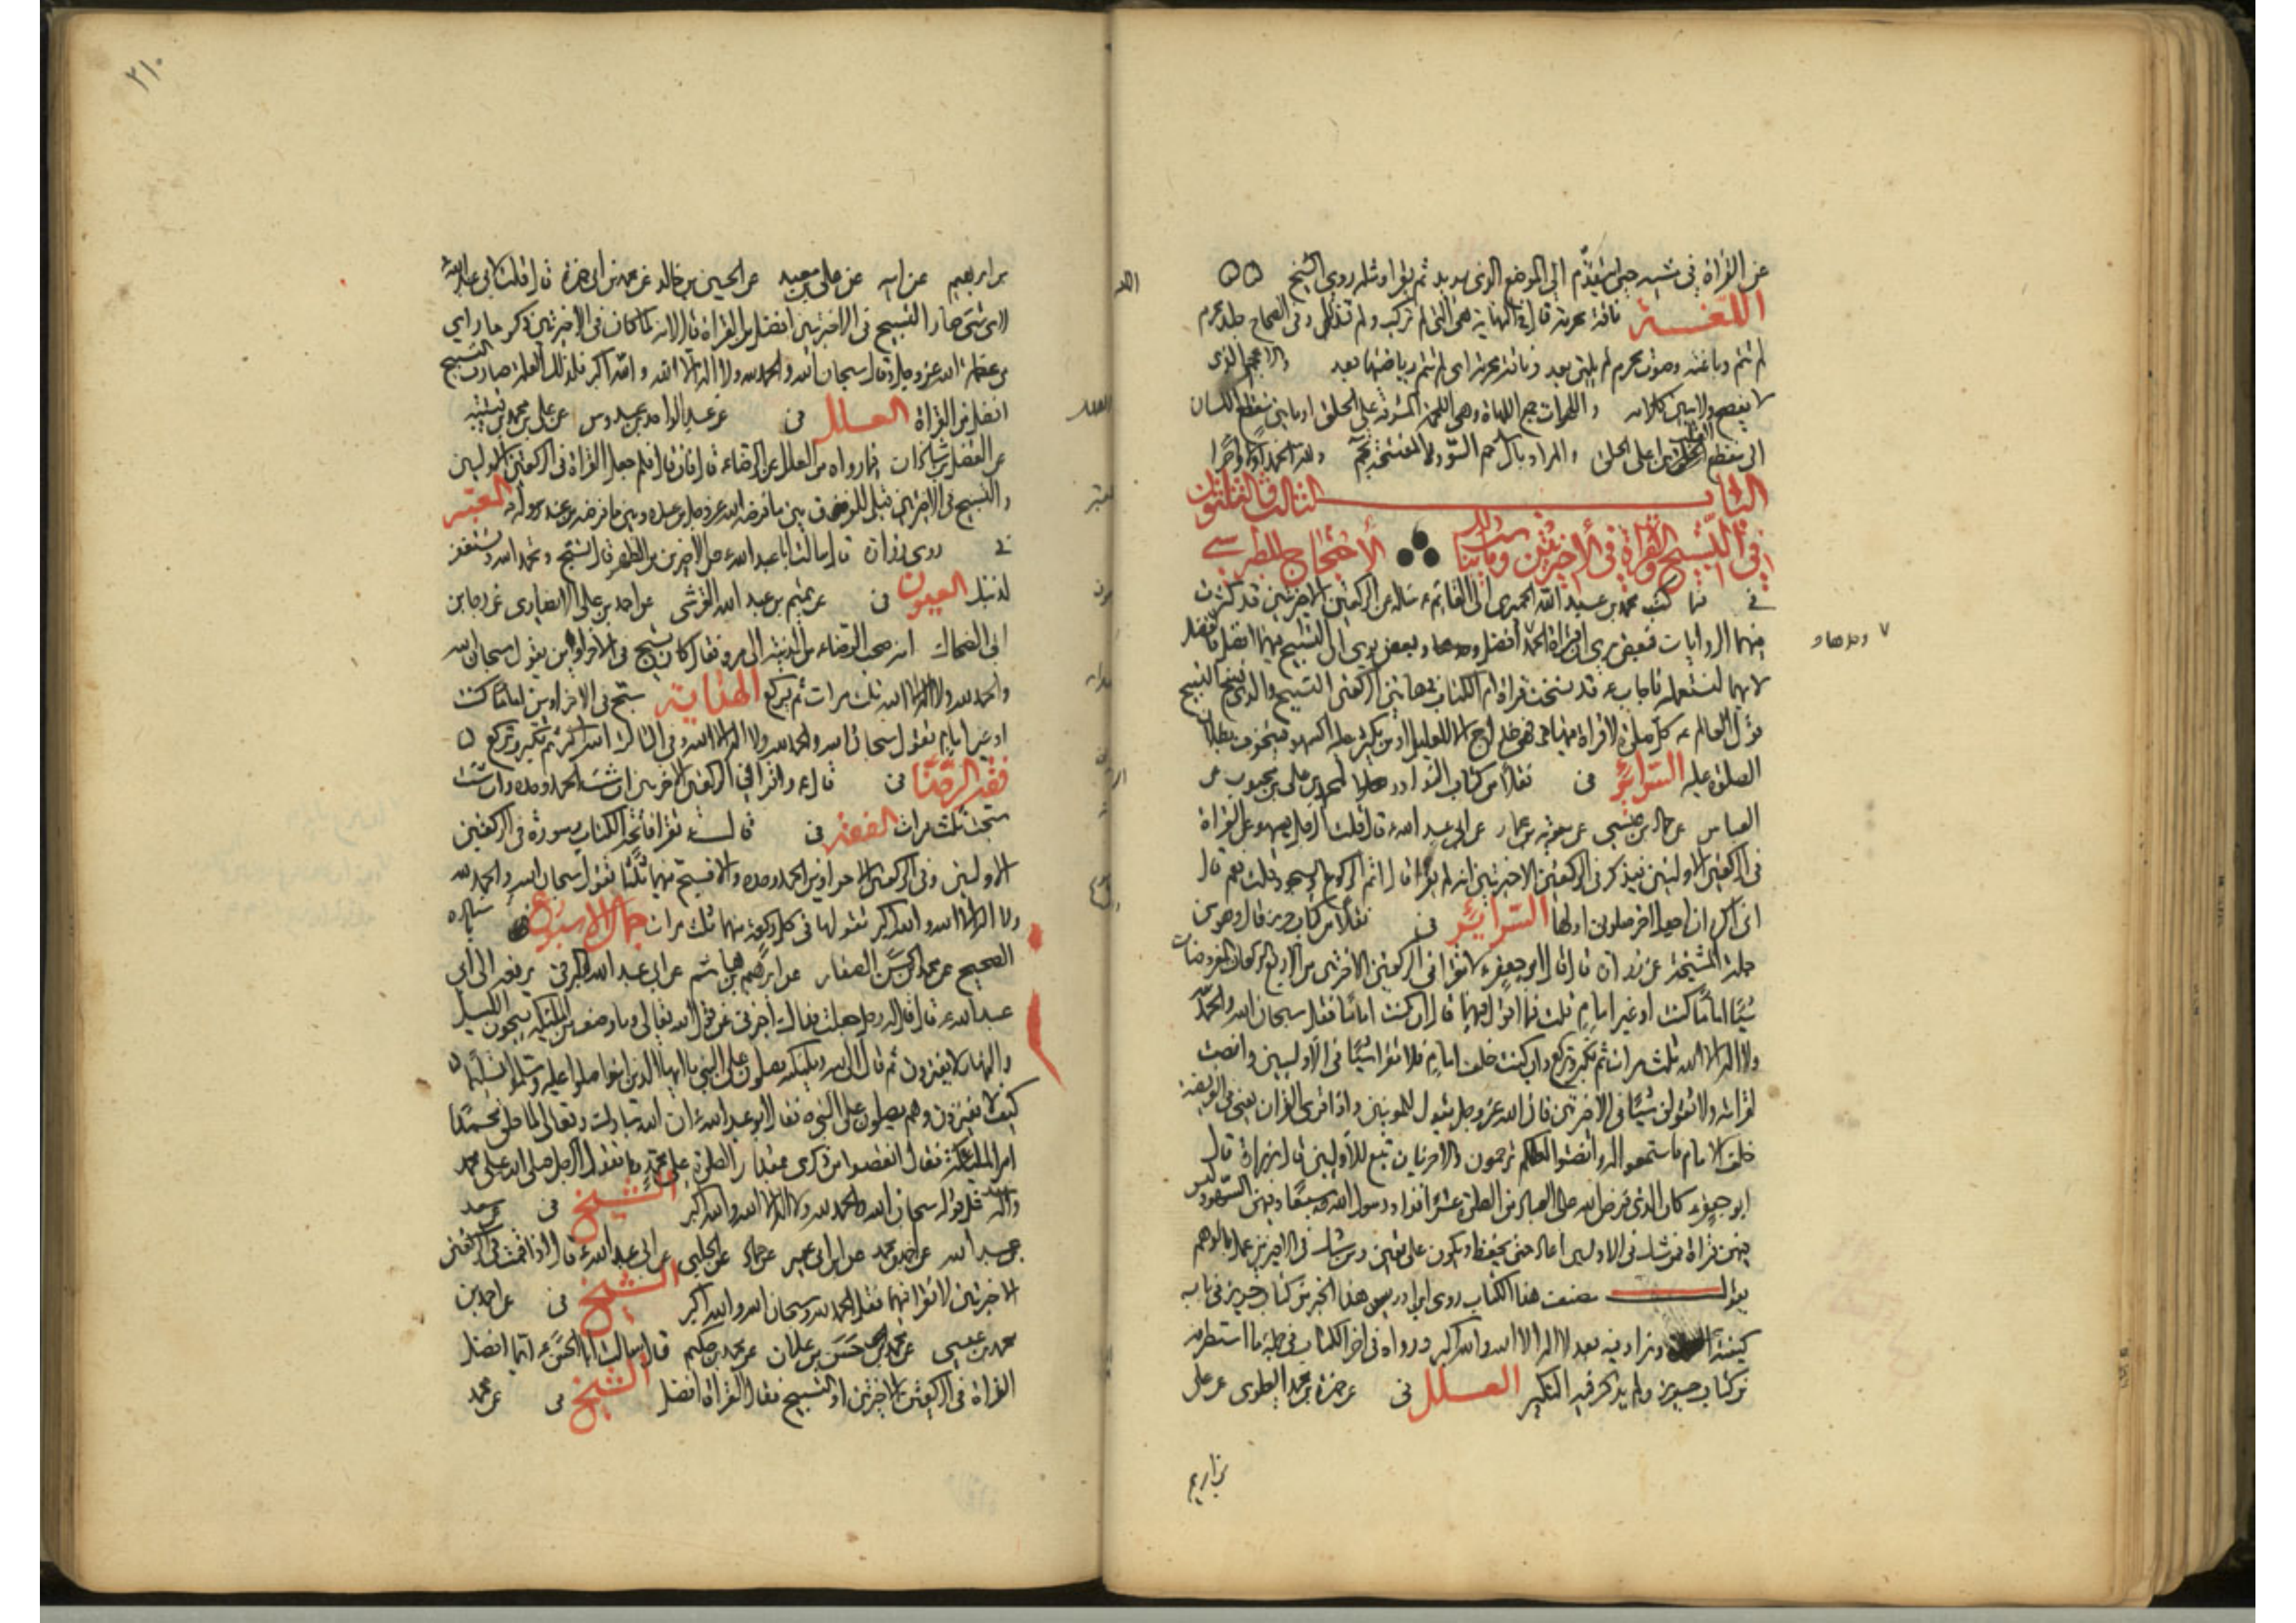 عن القراة في مشيه حتى يتقدم الى الموضع الذي يريد ثم يقرا ومثله روى الشيخ
اللغــــة ناقة محرمة قال في النهاية هي التي لم تركب ولم تذلل وفي الصحاح جلد محرم
لم تتم دباغته وصوت محرم لم يلين بعد وناقة محرمة اى لم تتم رياضتها بعد والاعجم الذي
لا يفصح ولا يبين كلامه واللهوات جمع اللهاة وهي اللحمة المشرفة على الحلق او ما بين منقطع اللسان
الى منقطع القلب من اعلى الحلق والمراد بال حم السور المفتتحة بحم ولله الحمد اولا واخرا
الباب الثالث والثلثون
في التسبيح والقراة في الاخيرتين الاحتجاج للطبرسي
في فيما كتب محمد بن عبد الله الحميري الى القائم ع يساله عن الركعتين الاخيرتين قد كثرت
فيهما الروايات فبعض يرى ان قراة الحمد افضل وبعض يرى ان التسبيح فيهما افضل فالفضل
لايهما لنستعمله فاجاب ع قد نسخت قراة ام الكتاب في هاتين الركعتين التسبيح والذي نسخ التسبيح
قول العالم ع كل صلوة لا قراة فيها فهي خداج الا للعليل او من يكثر عليه السهو فيتخوف بطلان
الصلوة عليه السرائر في نقلا من كتاب النوادر محمد بن علي بن محبوب عن
العباس عن حماد بن عيسى عن معوية بن عمار عن ابي عبد الله ع قال قلت الرجل يسهو عن القراة
في الركعتين الاولتين فيذكر في الركعتين الاخيرتين انه لم يقرا قال اتم الركوع والسجود قلت نعم قال
اني اكره ان اجعل اخر صلوتي اولها السرائر في نقلا من كتاب حريز قال وهو من
جلة المشيخة عن زرارة قال قال ابو جعفر ع لا تقرا في الركعتين الاخيرتين من الاربع الركعات المفروضات
شيئا اماما كنت او غير امام قلت فما اقول فيهما قال ان كنت اماما فقل سبحان الله والحمد لله
ولا اله الا الله ثلث مرات ثم تكبر وتركع وان كنت خلف امام فلا تقرا شيئا في الاوليين وانصت
لقرائته ولا تقولن شيئا في الاخيرتين فان الله عز وجل يقول للمومنين واذا قرئ القران يعني في الفريضة
خلف الامام فاستمعوا له وانصتوا لعلكم ترحمون والاخريان تبع للاوليين قال زرارة قال
ابو جعفر ع كان الذي فرض الله على العباد من الصلوة عشرا فزاد رسول الله ص سبعا وفيهن السهو وليس
فيهن قراة فمن شك في الاوليين اعاد حتى يحفظ ويكون على يقين ومن شك في الاخيرتين عمل بالوهم
يقول مصنف هذا الكتاب روى ابن ادريس هذا الخبر من كتاب حريز في باب
كيفية وزاد فيه بعد لا اله الا الله والله اكبر ورواه في اخر الكتاب في جملة ما استطرفه
من كتاب حريز ولم يذكر فيه التكبير العــلل في عن حمزة بن محمد العلوي عن علي
بن ابراهيم
٧ وحدها و
٢١٠
بن ابرهيم عن ابيه عن علي بن معبد عن الحسين بن خالد عن محمد بن ابي حمزة قال قلت لابي عبد الله ع
لاي شئ صار التسبيح في الاخيرتين افضل من القراة قال لانه لما كان في الاخيرتين ذكر ما راى
من عظمة الله عز وجل وقال سبحان الله والحمد لله ولا اله الا الله والله اكبر فلذلك العلة صار التسبيح
افضل من القراة العــلل في عن عبد الواحد بن عبدوس عن علي بن محمد بن قتيبة
عن الفضل بن شاذان فيما رواه من العلل عن الرضا ع قال فان قال فلم جعل القراة في الركعتين الاوليين
والتسبيح في الاخيرتين قيل للفرق بين ما فرضه الله عز وجل من عنده وبين ما فرضه من عند رسوله المعتبر
في روى زرارة قال سالت ابا عبد الله ع عن الاخيرتين من الظهر قال تسبح وتحمد الله وتستغفر
لذنبك العيون في عن تميم بن عبد الله القرشي عن احمد بن علي الانصاري عن رجا بن
ابي الضحاك انه صحب الرضا ع من المدينة الى مرو فقال كان يسبح في الاخراوين يقول سبحان الله
والحمد لله ولا اله الا الله ثلث مرات ثم يركع الهداية سبح في الاخراوين اماما كنت
او غير امام تقول سبحان الله والحمد لله ولا اله الا الله وفي الثالثة الله اكبر ثم تكبر وتركع
فقه الرضا في قال ع واقرا في الركعتين الاخرين ان شئت الحمد وحده وان شئت
سبحت ثلث مرات الفقه في قال ع تقرا فاتحة الكتاب وسورة في الركعتين
الاوليين وفي الركعتين الاخراوين الحمد وحده والا فسبح فيهما ثلثا ثلثا تقول سبحان الله والحمد لله
ولا اله الا الله والله اكبر تقولها في كل ركعة منهما ثلث مرات جمال الاسبوع باسناده
الصحيح عن محمد بن الحسن الصفار عن ابرهيم بن هاشم عن ابي عبد الله البرقي يرفعه الى ابي
عبد الله ع قال قال له رجل جعلت فداك اخبرني عن قول الله تعالى وما وصف من الملئكة يسبحون الليل
والنهار لا يفترون ثم قال ان الله وملئكته يصلون على النبي يا ايها الذين امنوا صلوا عليه وسلموا تسليما
كيف لا يفترون وهم يصلون على النبي ص فقال ابو عبد الله ع ان الله تبارك وتعالى لما خلق محمدا
امر الملئكة فقال انقصوا من ذكري بمقدار الصلوة على محمد فقول الرجل صلى الله على محمد
واله مثل قوله سبحان الله والحمد لله ولا اله الا الله والله اكبر الشيخ في سعد
بن عبد الله عن احمد بن محمد عن ابن ابي عمير عن حماد عن الحلبي عن ابي عبد الله ع قال اذا قمت في الركعتين
الاخيرتين لا تقرا فيهما فقل الحمد لله وسبحان الله والله اكبر الشيخ في عن احمد بن
محمد بن عيسى عن محمد بن الحسن بن علان عن محمد بن حكيم قال سالت ابا الحسن ع ايما افضل
القراة في الركعتين الاخيرتين او التسبيح فقال القراة افضل الشيخ في عن محمد